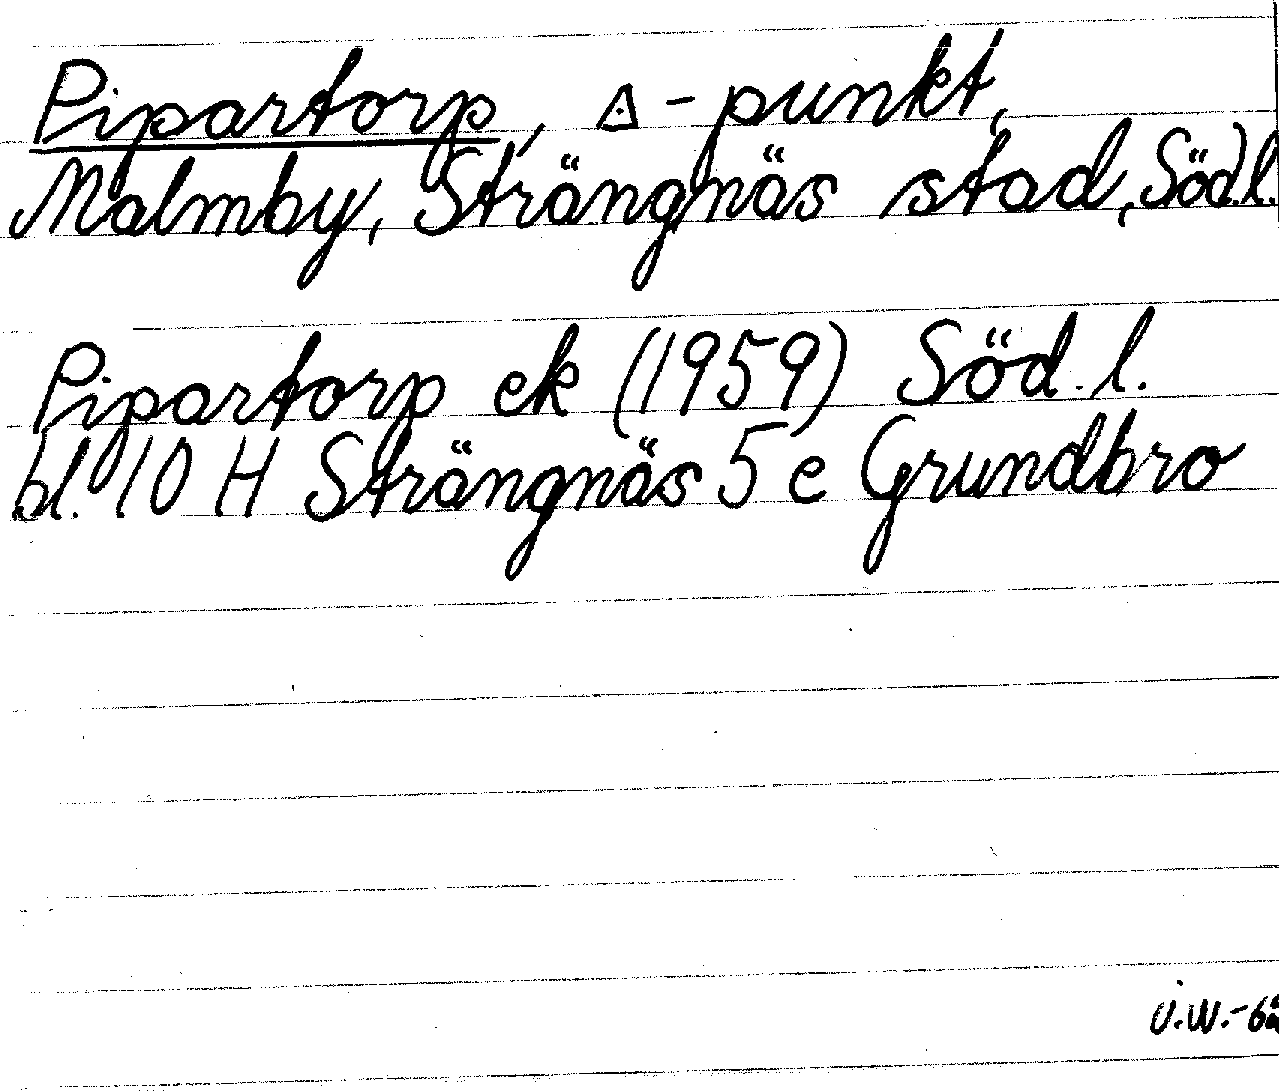 Pipartorp, ◬-punkt,
Malmby, Strängnäs stad, Söd.l.
Pipartorp ek (1959) Söd. l.
bl. 10 H Strängnäs 5 e Grundbro